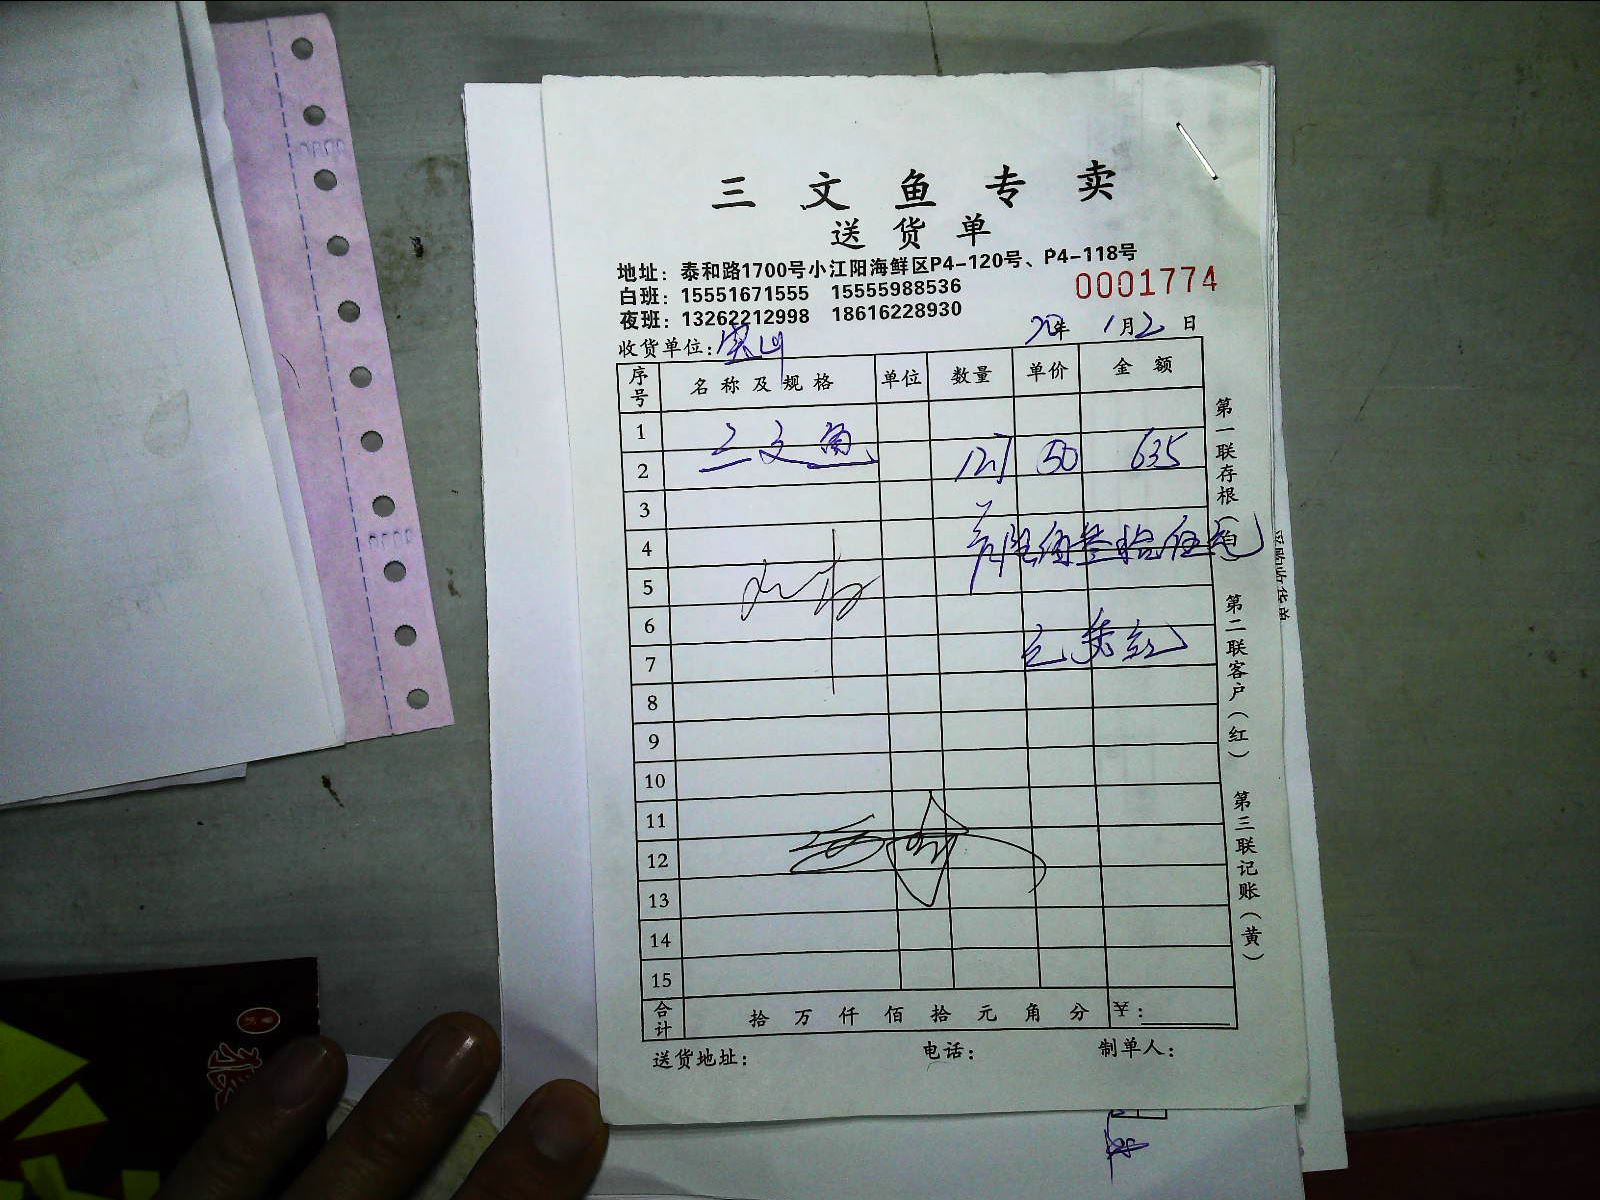 三文鱼专卖
送货单
地址：泰和路1700号小江阳海鲜区P4-120号、P4-118号
白班：15551671555 15555988536
夜班：13262212998 18616228930
0001774
收货单位：
年 1月2日
序号 名称及规格 单位 数量 单价 金额
1
三文鱼 127 50 635
2
3
4
陆佰叁拾伍元
5
6
7
8
9
10
11
12
13
14
15
合计 拾 万 仟 佰 拾 元 角 分 ￥：
送货地址： 电话： 制单人：
第一联存根（白） 第二联客户（红） 第三联记账（黄）